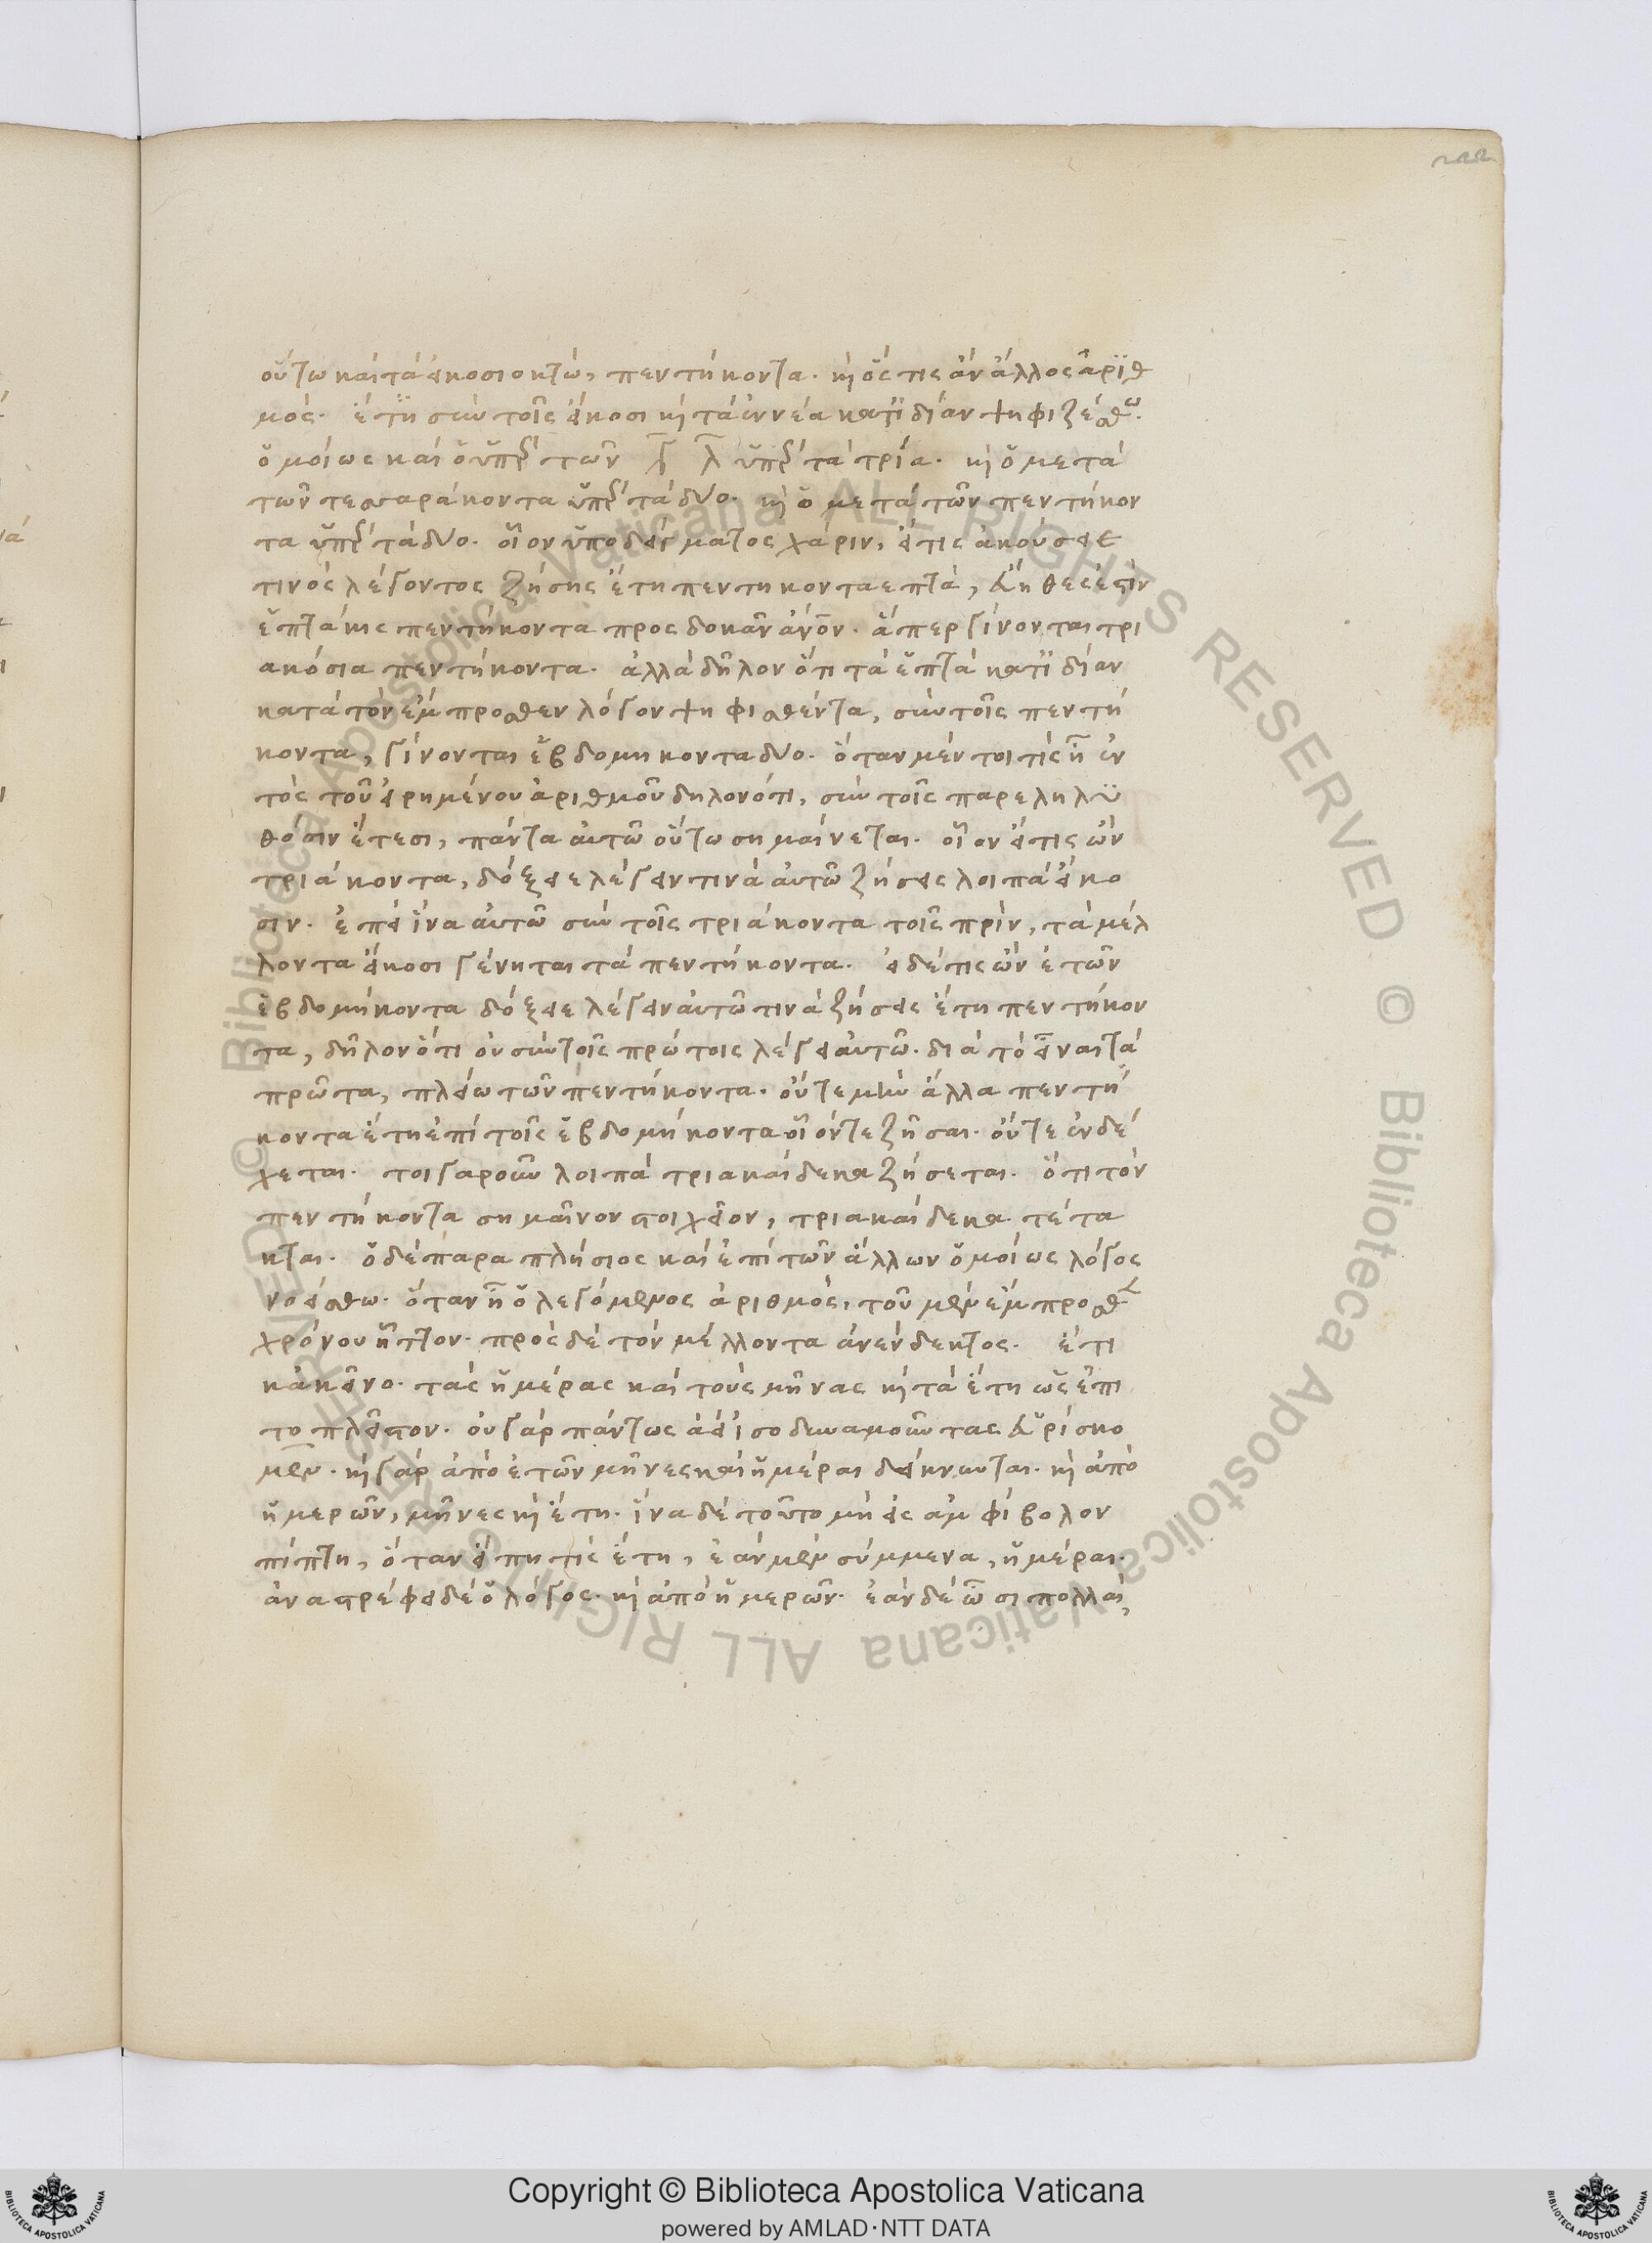 οὕτω καὶ τὰ εἰκοσιοκτὼ, πεντήκοντα. καὶ ὅςτις ἂν ἄλλος ἀριθ
μός. ἔτι σὺν τοῖς εἴκοσι καὶ τὰ ἐννέα κατϊδίαν ψηφιζέσθω.
ὁμοίως καὶ ὁ ὑπὲρ τῶν λ ὑπὲρ τὰ τρία. καὶ ὁ μετὰ
τῶν τεσσαράκοντα ὑπὲρ τὰ δύο. καὶ ὁ μετὰ τῶν πεντήκον
τα ὑπὲρ τὰ δύο. οἷον ὑποδείγματος χάριν, εἴ τις ἀκούσειε
τινὸς λέγοντος ζήσῃς ἔτη πεντηκονταεπτὰ, εὔηθές ἐστὶν
ἑπτάκις πεντήκοντα προςδοκᾶν ἄνον. ἅπερ γίνονται τρι
ακόσια πεντήκοντα. ἀλλὰ δῆλον ὅτι τὰ ἑπτὰ κατϊδίαν
κατὰ τὸν ἔμπροσθεν λόγον ψηφισθέντα, σὺν τοῖς πεντή
κοντα, γίνονται ἑβδομηκονταδύο. ὅταν μέντοι τίς ᾖ ἐν
τὸς τοῦ εἰρημένου ἀριθμοῦ δηλονότι, σὺν τοῖς παρεληλυ
θόσιν ἔτεσι, πάντα αὐτῶ οὕτω σημαίνεται. οἷον εἴ τις ὢν
τριάκοντα, δόξειε λέγειν τινὰ αὐτῶ ζήσεις λοιπὰ εἴκο
σιν. ἐπεὶ ἵνα αὐτῶ σὺν τοῖς τριάκοντα τοῖς πρὶν, τὰ μέλ
λοντα εἴκοσι γένηται τὰ πεντήκοντα. εἰ δέ τις ὢν ἐτῶν
ἑβδομήκοντα δόξειε λέγειν αὐτῶ τινὰ ζήσεις ἔτη πεντήκον
τα, δῆλον ὅτι οὐ σὺν τοῖς πρώτοις λέγει αὐτῶ. διὰ τὸ εἶναι τὰ
πρῶτα, πλείω τῶν πεντήκοντα. οὔτε μὴν ἄλλα πεντή
κοντα ἔτη ἐπὶ τοῖς ἑβδομήκοντα οἷόν τε ζῆσαι. οὔτε ἐνδέ
χεται. τοιγαροῦν λοιπὰ τριακαίδεκα ζήσεται. ὅτι τὸν
πεντήκοντα σημαῖνον στοιχεῖον, τριακαίδεκα τέτα
κται. ὁ δὲ παραπλήσιος καὶ ἐπὶ τῶν ἄλλων ὁμοίως λόγος
νοείσθω. ὅταν ᾖ ὁ λεγόμενος ἀριθμὸς, τοῦ μὲν ἔμπροσθεν
χρόνου ἧττον. πρὸς δὲ τὸν μέλλοντα ἀνένδεκτος. ἔτι
κἀκεῖνο. τὰς ἡμέρας καὶ τοὺς μῆνας καὶ τὰ ἔτη ὡς ἐπι
το πλεῖστον. οὐ γὰρ πάντως ἀεὶ ἰσοδυναμούντας εὑρίσκο
μεν. καὶ γὰρ ἀπὸ ἐτῶν μῆνες καὶ ἡμέραι δείκνυνται. καὶ ἀπὸ
ἡμερῶν, μῆνες καὶ ἔτη. ἵνα δὲ τοῦτο μὴ εἰς αμφίβολον
πίπτη, ὅταν εἴπη τίς ἔτη, ἐὰν μὲν σύμμενα, ἡμέραι.
ἀναστρέφει δὲ ὁ λόγος. καὶ ἀπὸ ἡμερῶν. ἐὰν δὲ ὦσι πολλαὶ,
Copyright © Biblioteca Apostolica Vaticana
powered by AMLAD·NTT DATA